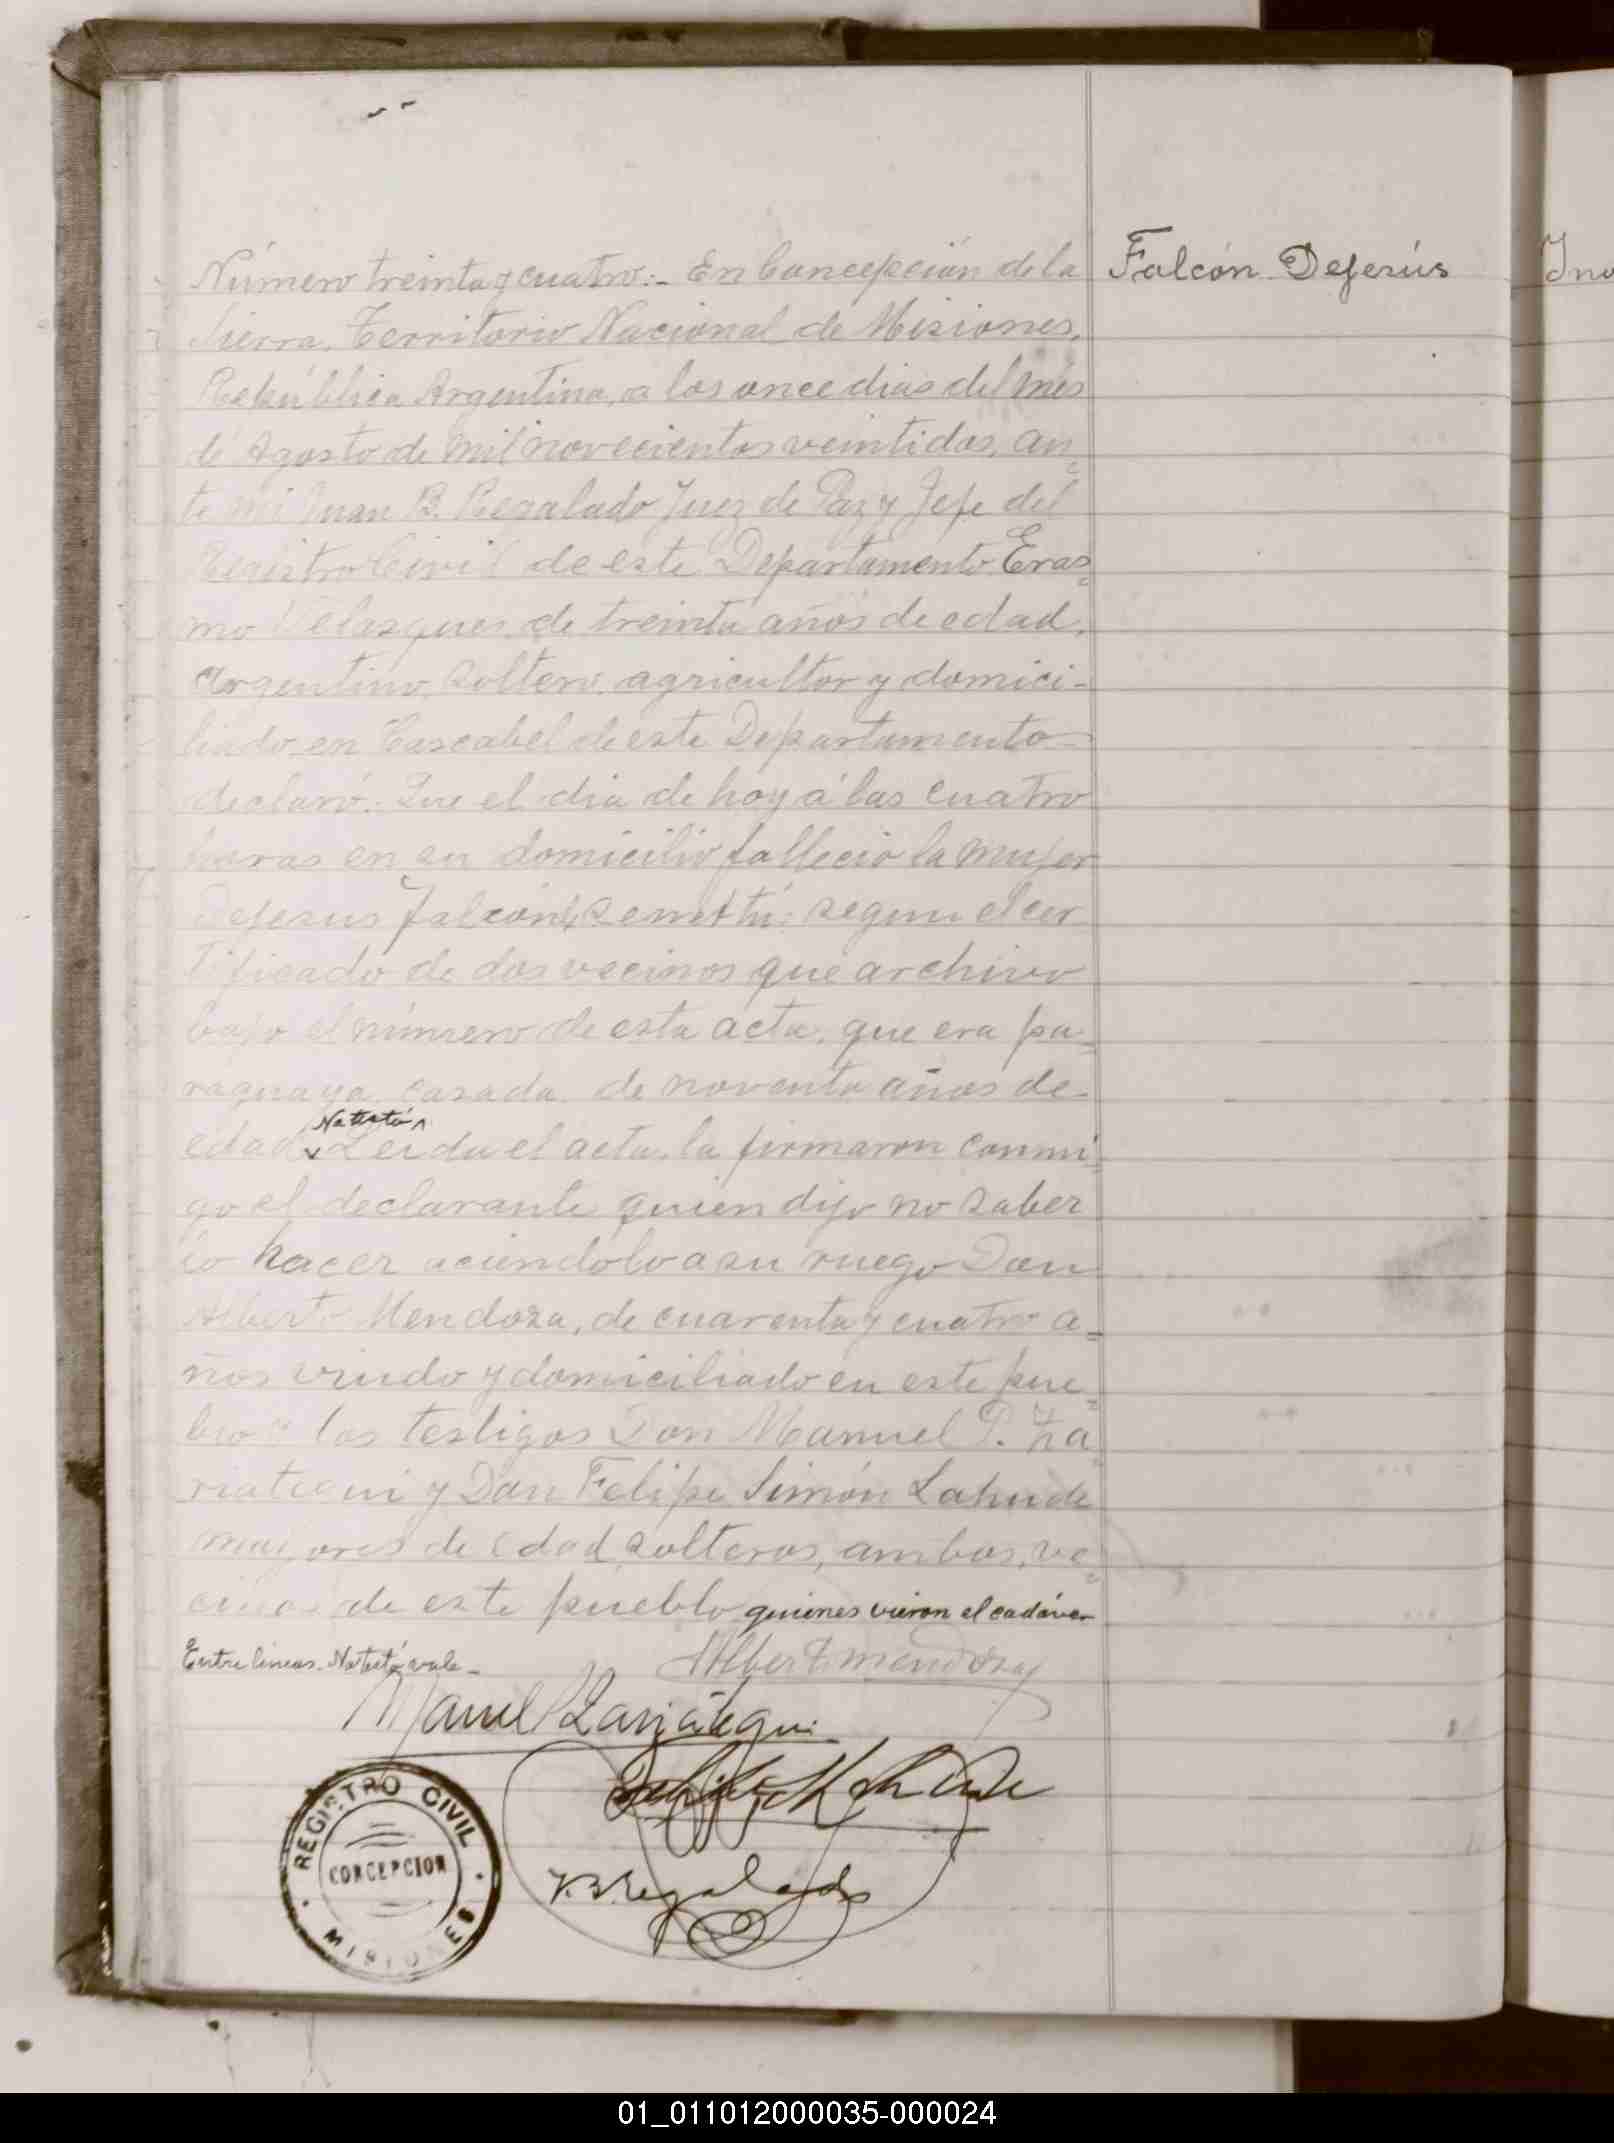 Número treinta y cuatro:- En Concepción de la
Sierra, Territorio Nacional de Misiones,
República Argentina, a los once dias del mes
de Agosto de mil novecientos veintidos, an=
te mi Juan B. Regalado Juez de Paz y Jefe del
Registro Civil de este Departamento Eras=
mo Velasques, de treinta años de edad,
Argentino, soltero, agricultor y domici-
liado en Cascabel de este Departamento
declaró: Que el dia de hoy á las cuatro
horas en su domicilio falleció la mujer
Dejesus Falcón, segun el cer
tificado de dos vecinos que archivo
bajo el número de esta acta, que era pa=
raguaya, casada, de noventa años de
Notestó
edad. Leida el acta, la firmaron conmi=
go el declarante quien dijo no saber
lo hacer aciendolo a su ruego Don
Alberto Mendoza, de cuarenta y cuatro a=
ños viudo y domiciliado en este pue=
blo y los testigos Don Manuel P. Za
riategui y Don Felipe Simón Lahude
mayores de edad, solteros, ambos, ve=
cinos de este pueblo quienes vieron el cadáver
Entre lineas. Notestó vale-
Alberto Mendoza
Manuel P Zariategui
J. B. Regalado
REGISTRO CIVIL
CONCEPCION
MISIONES
Falcón Dejesús
01_011012000035-000024